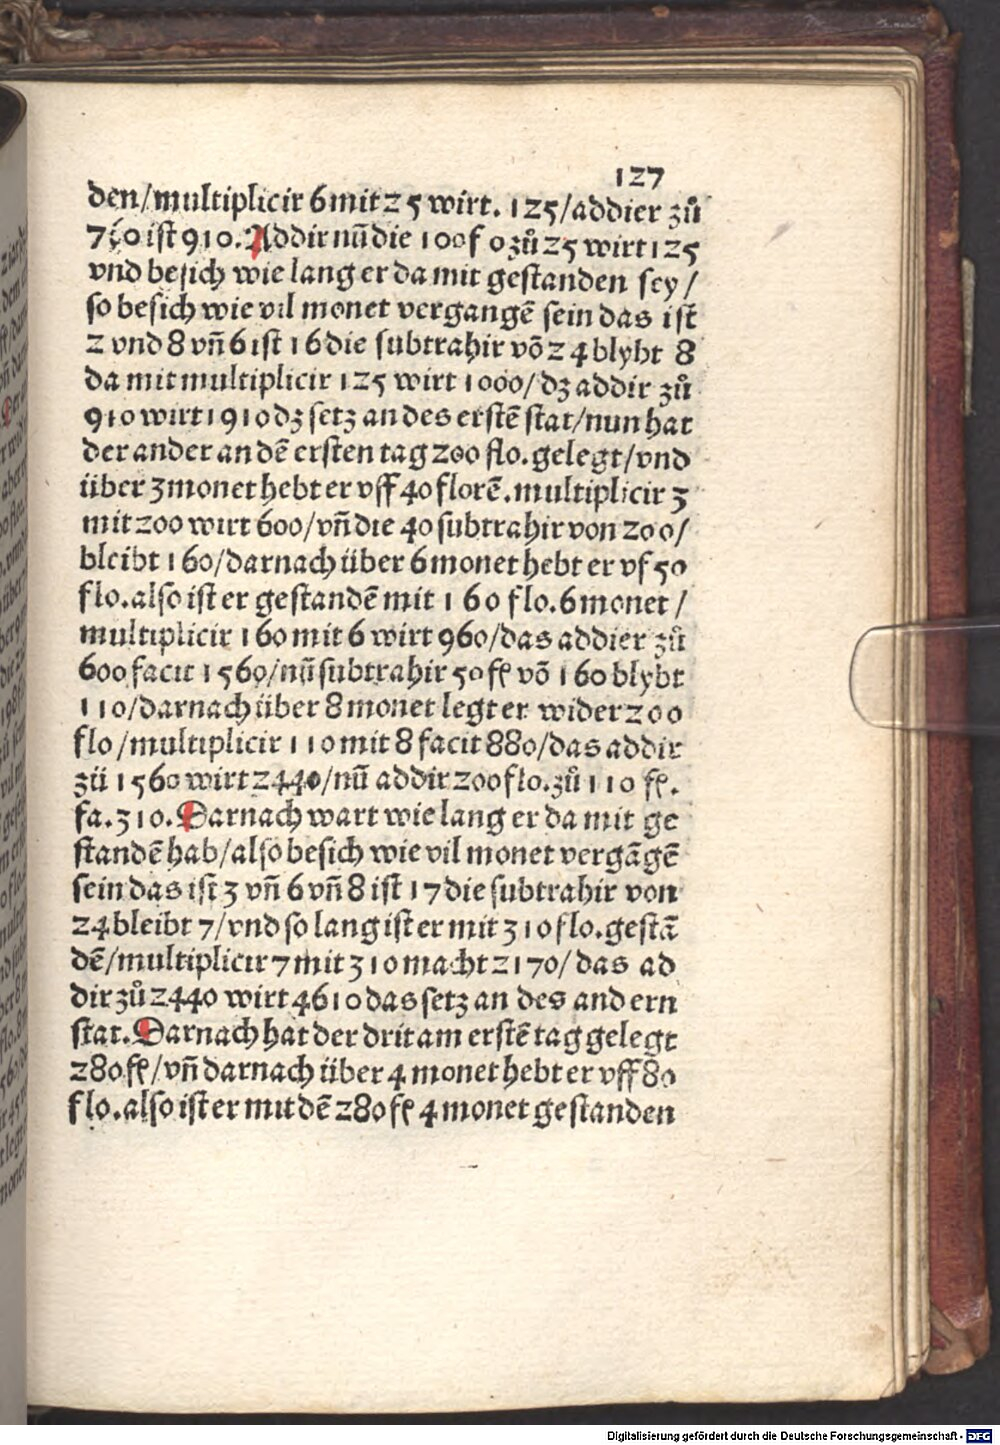 127
den/multiplicir 6 mit 25 wirt. 125/addier zů
760 ist 910. Addir nū die 100 f o zů 25 wirt 125
vnd besich wie lang er da mit gestanden sey/
so besich wie vil monet vergangē sein das ist
2 vnd 8 vñ 6 ist 16 die subtrahir võ 24 blybt 8
da mit multiplicir 125 wirt 1000/dz addir zů
910 wirt 1910 dz setz an des erstē stat/nun hat
der ander an dē ersten tag 200 flo. gelegt/vnd
über 3 monet hebt er vff 40 florē. multiplicir 3
mit 200 wirt 600/vñ die 40 subtrahir von 200/
bleibt 160/darnach über 6 monet hebt er vf 50
flo. also ist er gestandē mit 160 flo. 6 monet/
multiplicir 160 mit 6 wirt 960/das addier zů
600 facit 1560/nū subtrahir 50 fl võ 160 blybt
110/darnach über 8 monet legt er wider 200
flo/multiplicir 110 mit 8 facit 880/das addir
zü 1560 wirt 2440/nū addir 200 flo. zů 110 fl.
fa. 310. Darnach wart wie lang er da mit ge
standē hab/also besich wie vil monet vergāgē
sein das ist 3 vñ 6 vñ 8 ist 17 die subtrahir von
24 bleibt 7/vnd so lang ist er mit 310 flo. gestā
dē/multiplicir 7 mit 310 macht 2170/das ad
dir zů 2440 wirt 4610 das setz an des andern
stat. Darnach hat der drit am erstē tag gelegt
280 fl/vñ darnach über 4 monet hebt er vff 80
flo. also ist er mit dē 280 fl 4 monet gestanden
Digitalisierung gefördert durch die Deutsche Forschungsgemeinschaft - DFG